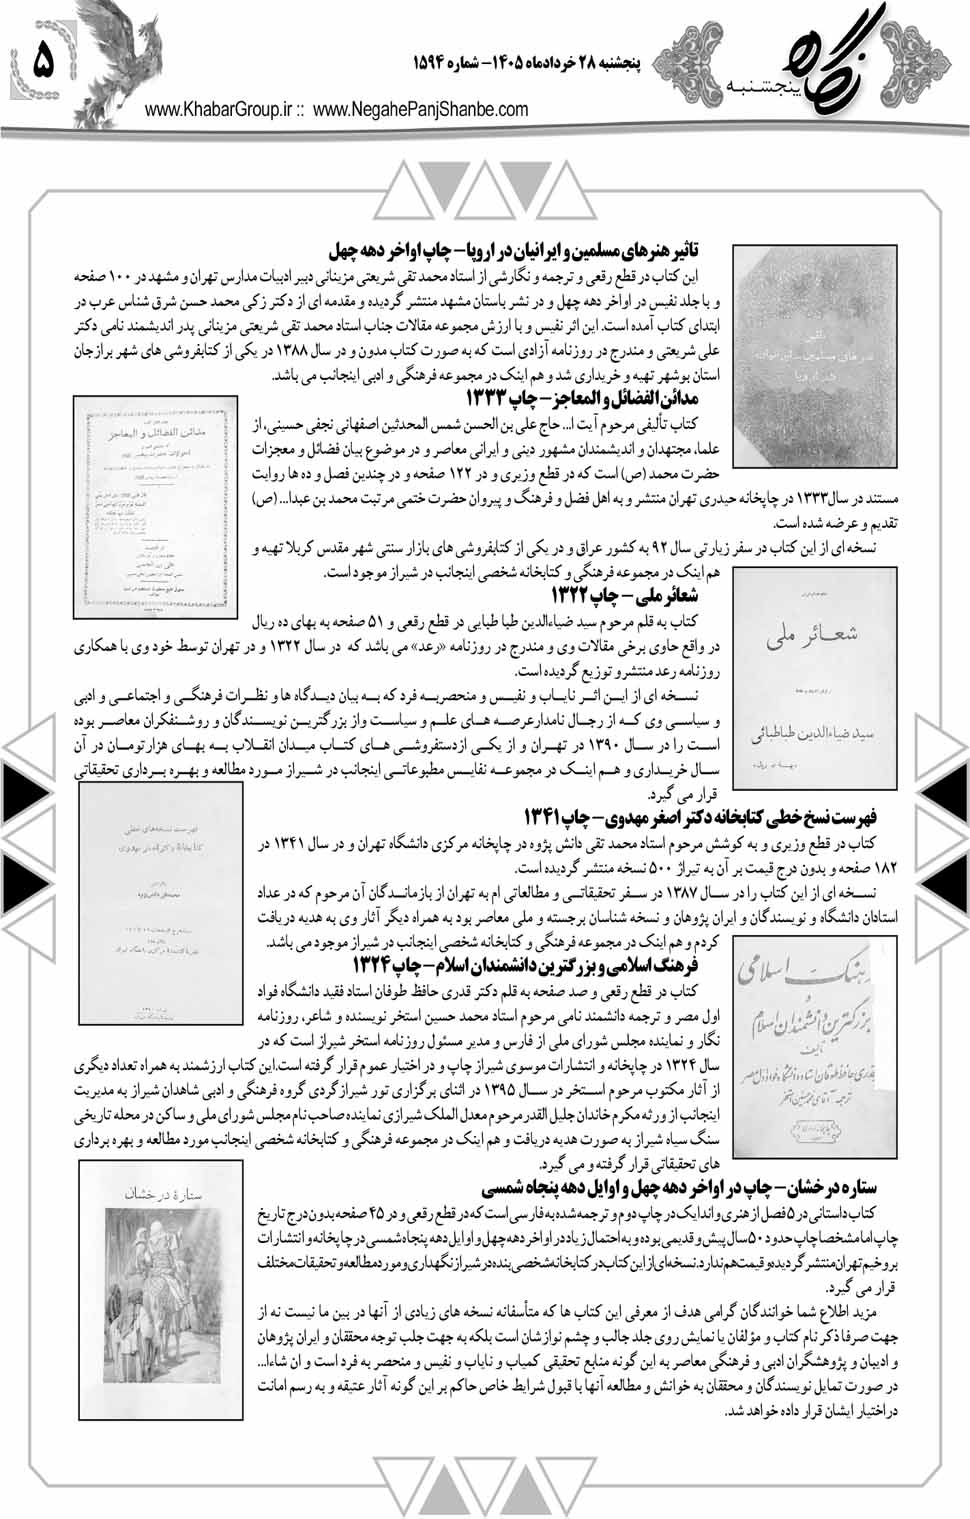 ۵
پنجشنبه ۲۸ خردادماه ۱۴۰۵- شماره ۱۵۹۴
نگاه پنجشنبه
www.KhabarGroup.ir :: www.NegahePanjShanbe.com
تاثیر هنرهای مسلمین و ایرانیان در اروپا- چاپ اواخر دهه چهل
این کتاب در قطع رقعی و ترجمه و نگارشی از استاد محمد تقی شریعتی مزینانی دبیر ادبیات مدارس تهران و مشهد در ۱۰۰ صفحه
و با جلد نفیس در اواخر دهه چهل و در نشر باستان مشهد منتشر گردیده و مقدمه ای از دکتر زکی محمد حسن شرق شناس عرب در
ابتدای کتاب آمده است. این اثر نفیس و با ارزش مجموعه مقالات جناب استاد محمد تقی شریعتی مزینانی پدر اندیشمند نامی دکتر
علی شریعتی و مندرج در روزنامه آزادی است که به صورت کتاب مدون و در سال ۱۳۸۸ در یکی از کتابفروشی های شهر برازجان
استان بوشهر تهیه و خریداری شد و هم اینک در مجموعه فرهنگی و ادبی اینجانب می باشد.
مدائن الفضائل و المعاجز- چاپ ۱۳۳۳
کتاب تألیفی مرحوم آیت ا... حاج علی بن الحسن شمس المحدثین اصفهانی نجفی حسینی، از
علما، مجتهدان و اندیشمندان مشهور دینی و ایرانی معاصر و در موضوع بیان فضائل و معجزات
حضرت محمد (ص) است که در قطع وزیری و در ۱۲۲ صفحه و در چندین فصل و ده ها روایت
مستند در سال۱۳۳۳ در چاپخانه حیدری تهران منتشر و به اهل فضل و فرهنگ و پیروان حضرت ختمی مرتبت محمد بن عبدا... (ص)
تقدیم و عرضه شده است.
نسخه ای از این کتاب در سفر زیارتی سال ۹۲ به کشور عراق و در یکی از کتابفروشی های بازار سنتی شهر مقدس کربلا تهیه و
هم اینک در مجموعه فرهنگی و کتابخانه شخصی اینجانب در شیراز موجود است.
شعائر ملی - چاپ ۱۳۲۲
کتاب به قلم مرحوم سید ضیاءالدین طبا طبایی در قطع رقعی و ۵۱ صفحه به بهای ده ریال
در واقع حاوی برخی مقالات وی و مندرج در روزنامه «رعد» می باشد که در سال ۱۳۲۲ و در تهران توسط خود وی با همکاری
روزنامه رعد منتشرو توزیع گردیده است.
نسخه ای از این اثر نایاب و نفیس و منحصربه فرد که به بیان دیدگاه ها و نظرات فرهنگی و اجتماعی و ادبی
و سیاسی وی که از رجال نامدارعرصه های علم و سیاست واز بزرگترین نویسندگان و روشنفکران معاصر بوده
است را در سال ۱۳۹۰ در تهران و از یکی ازدستفروشی های کتاب میدان انقلاب به بهای هزارتومان در آن
سال خریداری و هم اینک در مجموعه نفایس مطبوعاتی اینجانب در شیراز مورد مطالعه و بهره برداری تحقیقاتی
قرار می گیرد.
فهرست نسخ خطی کتابخانه دکتر اصغر مهدوی- چاپ ۱۳۴۱
کتاب در قطع وزیری و به کوشش مرحوم استاد محمد تقی دانش پژوه در چاپخانه مرکزی دانشگاه تهران و در سال ۱۳۴۱ در
۱۸۲ صفحه و بدون درج قیمت بر آن به تیراژ ۵۰۰ نسخه منتشر گردیده است.
نسخه ای از این کتاب را در سال ۱۳۸۷ در سفر تحقیقاتی و مطالعاتی ام به تهران از بازماندگان آن مرحوم که در عداد
استادان دانشگاه و نویسندگان و ایران پژوهان و نسخه شناسان برجسته و ملی معاصر بود به همراه دیگر آثار وی به هدیه دریافت
کردم و هم اینک در مجموعه فرهنگی و کتابخانه شخصی اینجانب در شیراز موجود می باشد.
فرهنگ اسلامی و بزرگترین دانشمندان اسلام- چاپ ۱۳۲۴
کتاب در قطع رقعی و صد صفحه به قلم دکتر قدری حافظ طوفان استاد فقید دانشگاه فواد
اول مصر و ترجمه دانشمند نامی مرحوم استاد محمد حسین استخر نویسنده و شاعر، روزنامه
نگار و نماینده مجلس شورای ملی از فارس و مدیر مسئول روزنامه استخر شیراز است که در
سال ۱۳۲۴ در چاپخانه و انتشارات موسوی شیراز چاپ و در اختیار عموم قرار گرفته است.این کتاب ارزشمند به همراه تعداد دیگری
از آثار مکتوب مرحوم استخر در سال ۱۳۹۵ در اثنای برگزاری تور شیرازگردی گروه فرهنگی و ادبی شاهدان شیراز به مدیریت
اینجانب از ورثه مکرم خاندان جلیل القدر مرحوم معدل الملک شیرازی نماینده صاحب نام مجلس شورای ملی و ساکن در محله تاریخی
سنگ سیاه شیراز به صورت هدیه دریافت و هم اینک در مجموعه فرهنگی و کتابخانه شخصی اینجانب مورد مطالعه و بهره برداری
های تحقیقاتی قرار گرفته و می گیرد.
ستاره درخشان- چاپ در اواخر دهه چهل و اوایل دهه پنجاه شمسی
کتاب داستانی در ۵ فصل از هنری واندایک در چاپ دوم و ترجمه شده به فارسی است که در قطع رقعی و در ۴۵ صفحه بدون درج تاریخ
چاپ اما مشخصا چاپ حدود ۵۰ سال پیش و قدیمی بوده و به احتمال زیاد در اواخر دهه چهل و اوایل دهه پنجاه شمسی در چاپخانه و انتشارات
بروخیم تهران منتشر گردیده و قیمت هم ندارد. نسخه ای از این کتاب در کتابخانه شخصی بنده در شیراز نگهداری و مورد مطالعه و تحقیقات مختلف
قرار می گیرد.
مزید اطلاع شما خوانندگان گرامی هدف از معرفی این کتاب ها که متأسفانه نسخه های زیادی از آنها در بین ما نیست نه از
جهت صرفا ذکر نام کتاب و مؤلفان یا نمایش روی جلد جالب و چشم نوازشان است بلکه به جهت جلب توجه محققان و ایران پژوهان
و ادیبان و پژوهشگران ادبی و فرهنگی معاصر به این گونه منابع تحقیقی کمیاب و نایاب و نفیس و منحصر به فرد است و ان شاءا...
در صورت تمایل نویسندگان و محققان به خوانش و مطالعه آنها با قبول شرایط خاص حاکم بر این گونه آثار عتیقه و به رسم امانت
دراختیار ایشان قرار داده خواهد شد.
مدائن الفضائل و المعاجز
شعائر ملی
سید ضیاءالدین طباطبائی
فهرست نسخه‌های خطی
کتابخانهٔ دکتر اصغر مهدوی
بزرگترین دانشمندان اسلام
تألیف
ستارهٔ درخشان